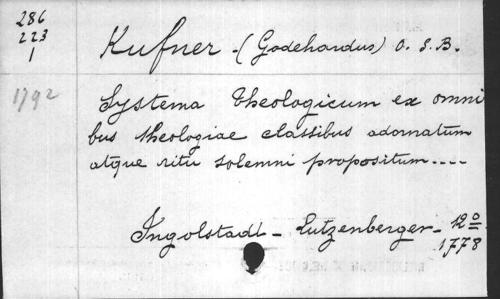 286
223
1
Kufner - (Godehardus) O. S. B.
1792
Systema theologicum ex omni
bus theologiae classibus adornatum
atque ritu solemni propositum....
Ingolstadt - Lutzenberger - 12º
1778